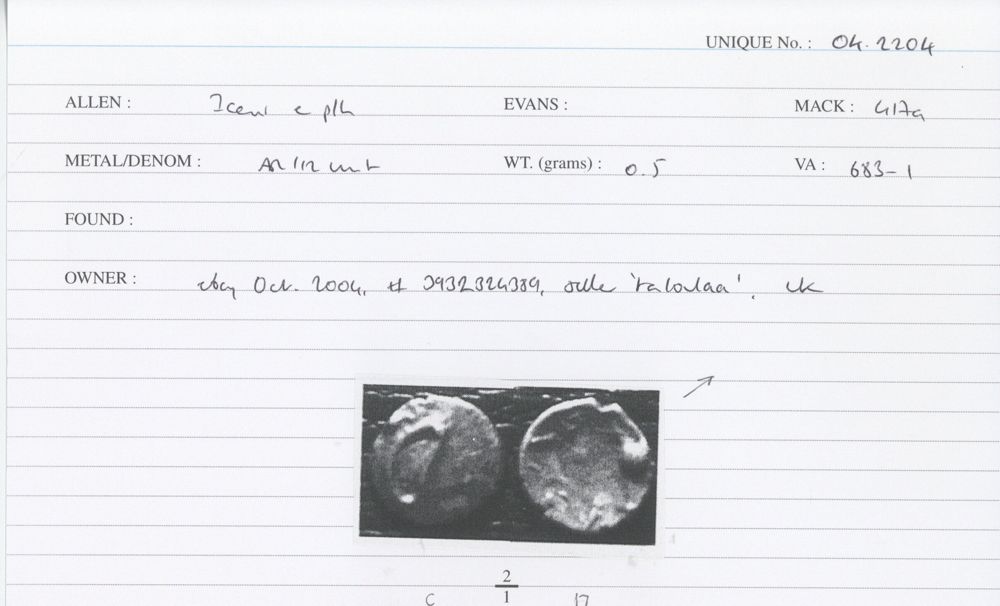 UNIQUE No. : 04.2204
ALLEN : Iceni c plh EVANS : MACK : 417a
METAL/DENOM : AR 1/2 unit WT. (grams) : 0.5 VA : 683-1
FOUND :
OWNER : ebay Oct. 2004, # 3932324389, seller , uk
2
1
C 17